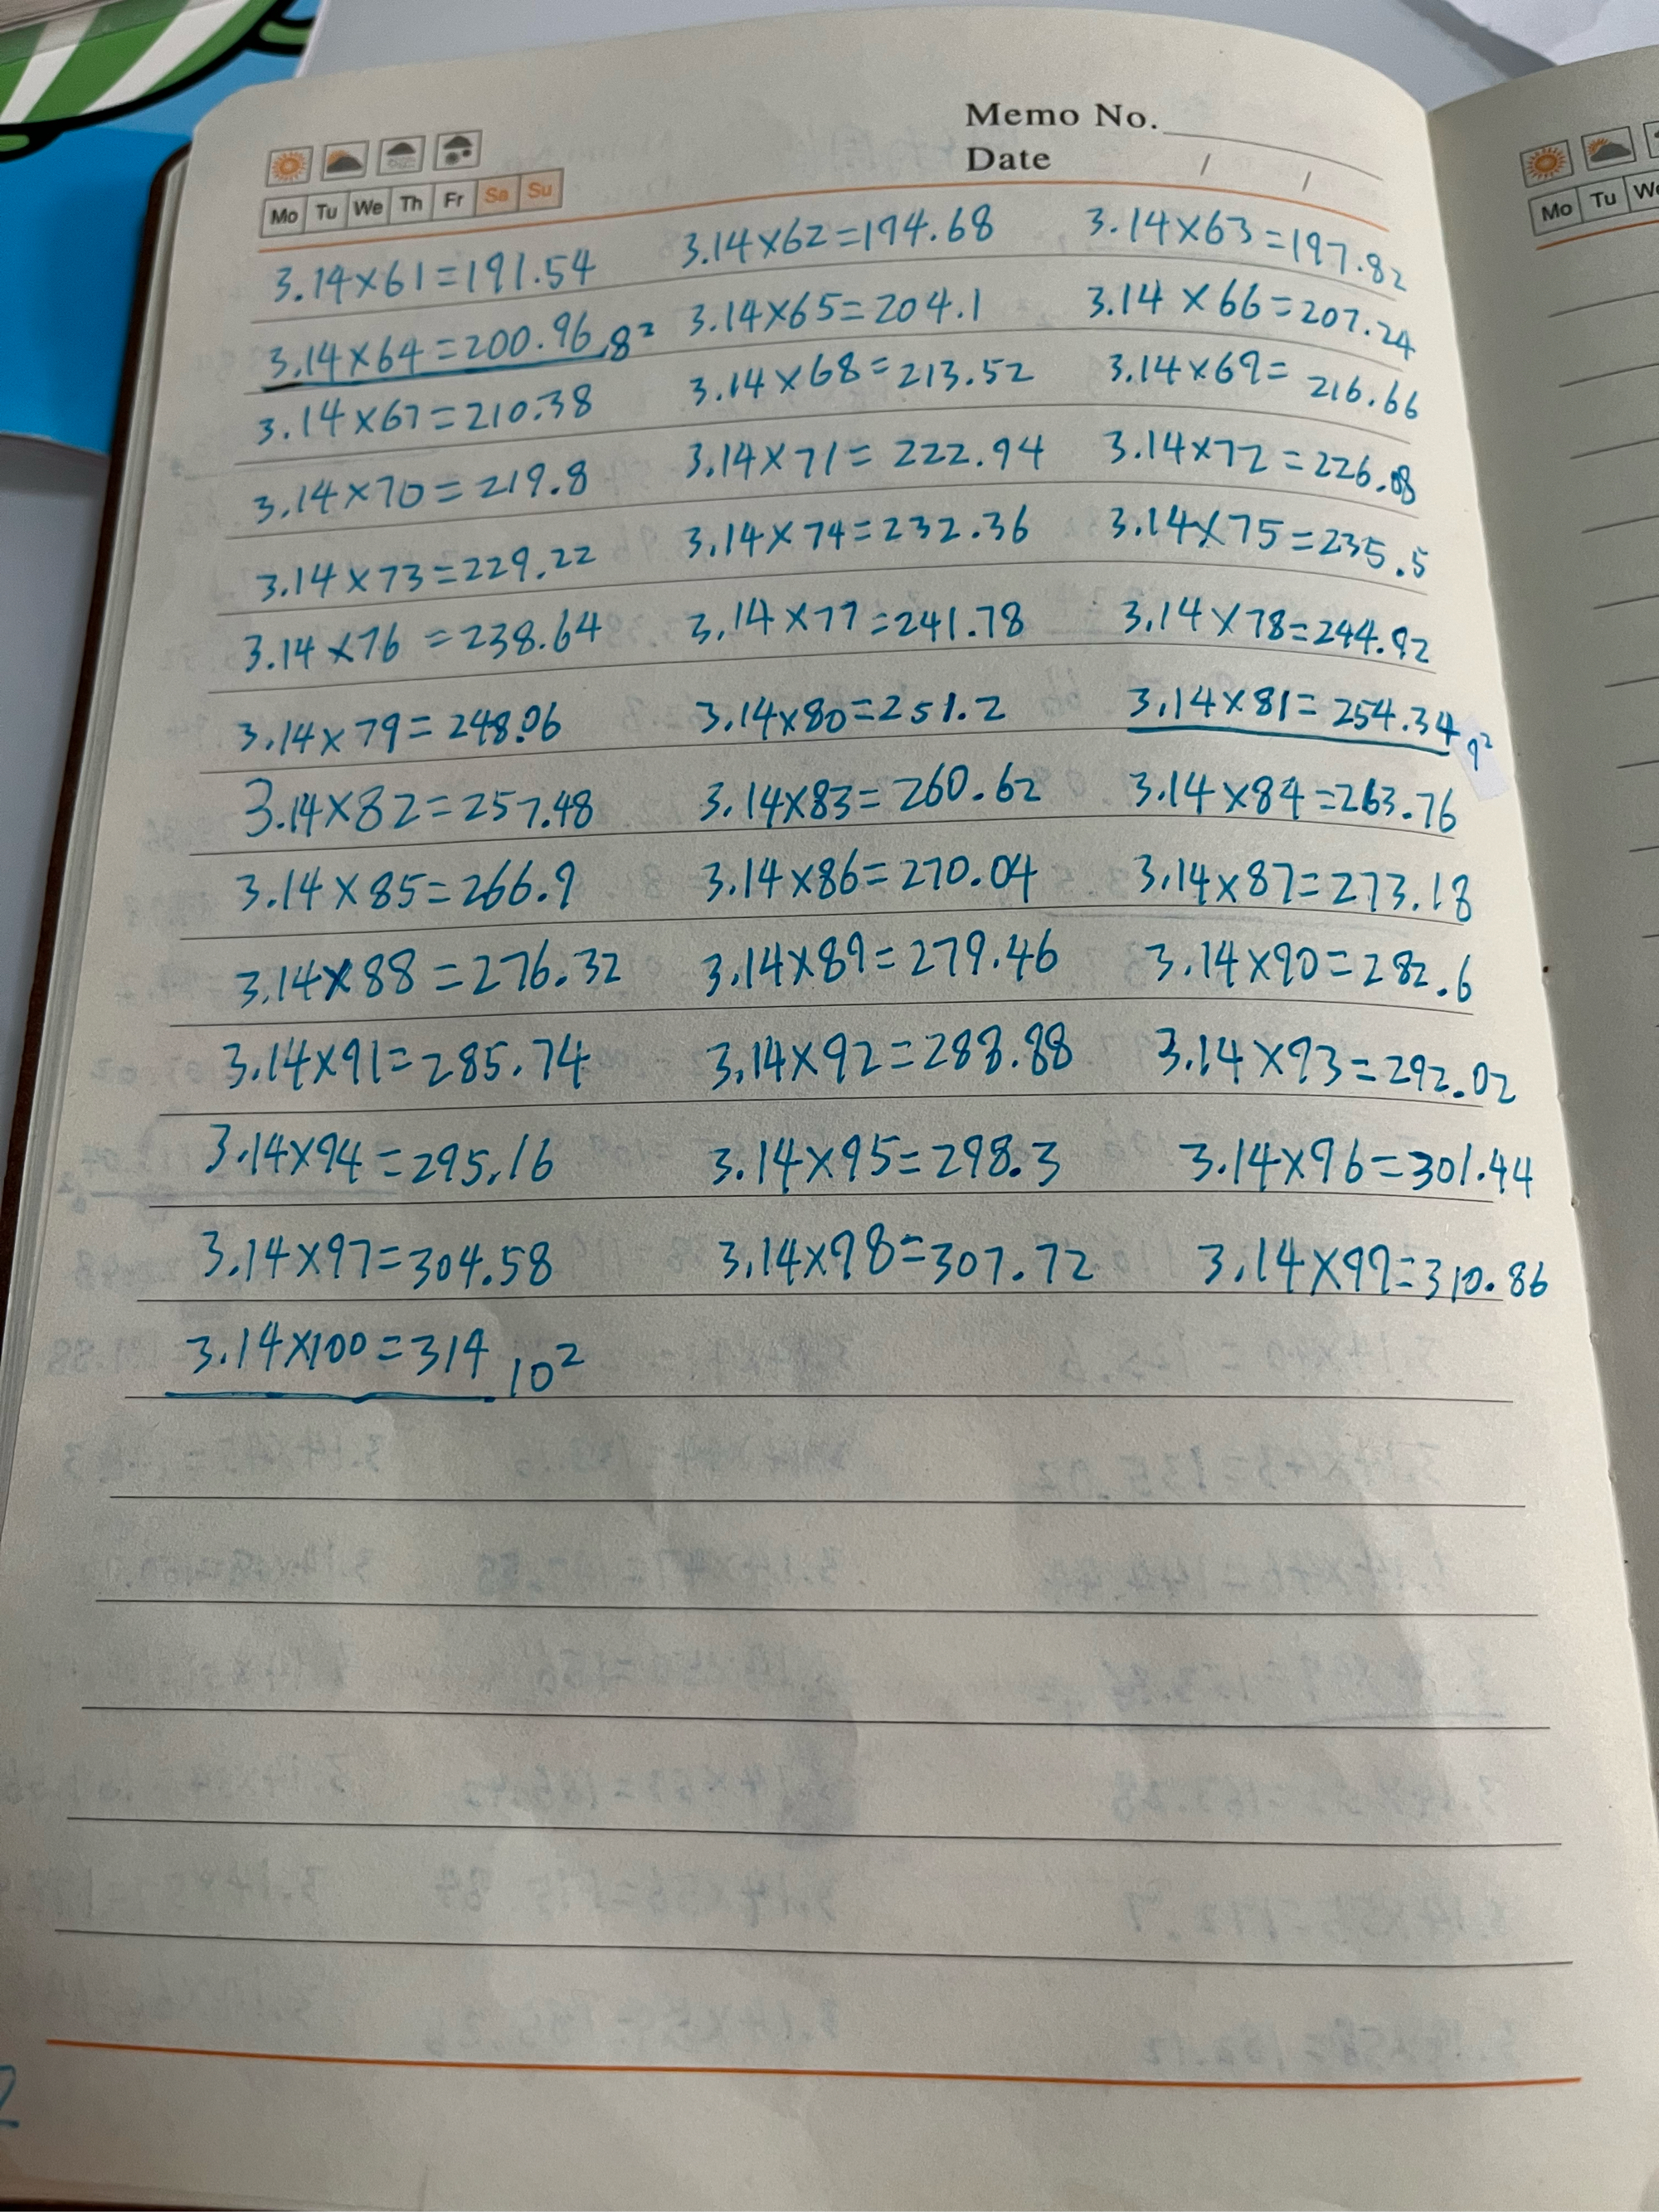 Memo No.
Date / /
Mo Tu We Th Fr Sa Su
Mo Tu We
3.14×61=191.54 3.14×62=194.68 3.14×63=197.82
3.14×64=200.96 8² 3.14×65=204.1 3.14×66=207.24
3.14×67=210.38 3.14×68=213.52 3.14×69=216.66
3.14×70=219.8 3.14×71=222.94 3.14×72=226.08
3.14×73=229.22 3.14×74=232.36 3.14×75=235.5
3.14×76=238.64 3.14×77=241.78 3.14×78=244.92
3.14×79=248.06 3.14×80=251.2 3.14×81=254.34 9²
3.14×82=257.48 3.14×83=260.62 3.14×84=263.76
3.14×85=266.9 3.14×86=270.04 3.14×87=273.18
3.14×88=276.32 3.14×89=279.46 3.14×90=282.6
3.14×91=285.74 3.14×92=288.88 3.14×93=292.02
3.14×94=295.16 3.14×95=298.3 3.14×96=301.44
3.14×97=304.58 3.14×98=307.72 3.14×99=310.86
3.14×100=314 10²